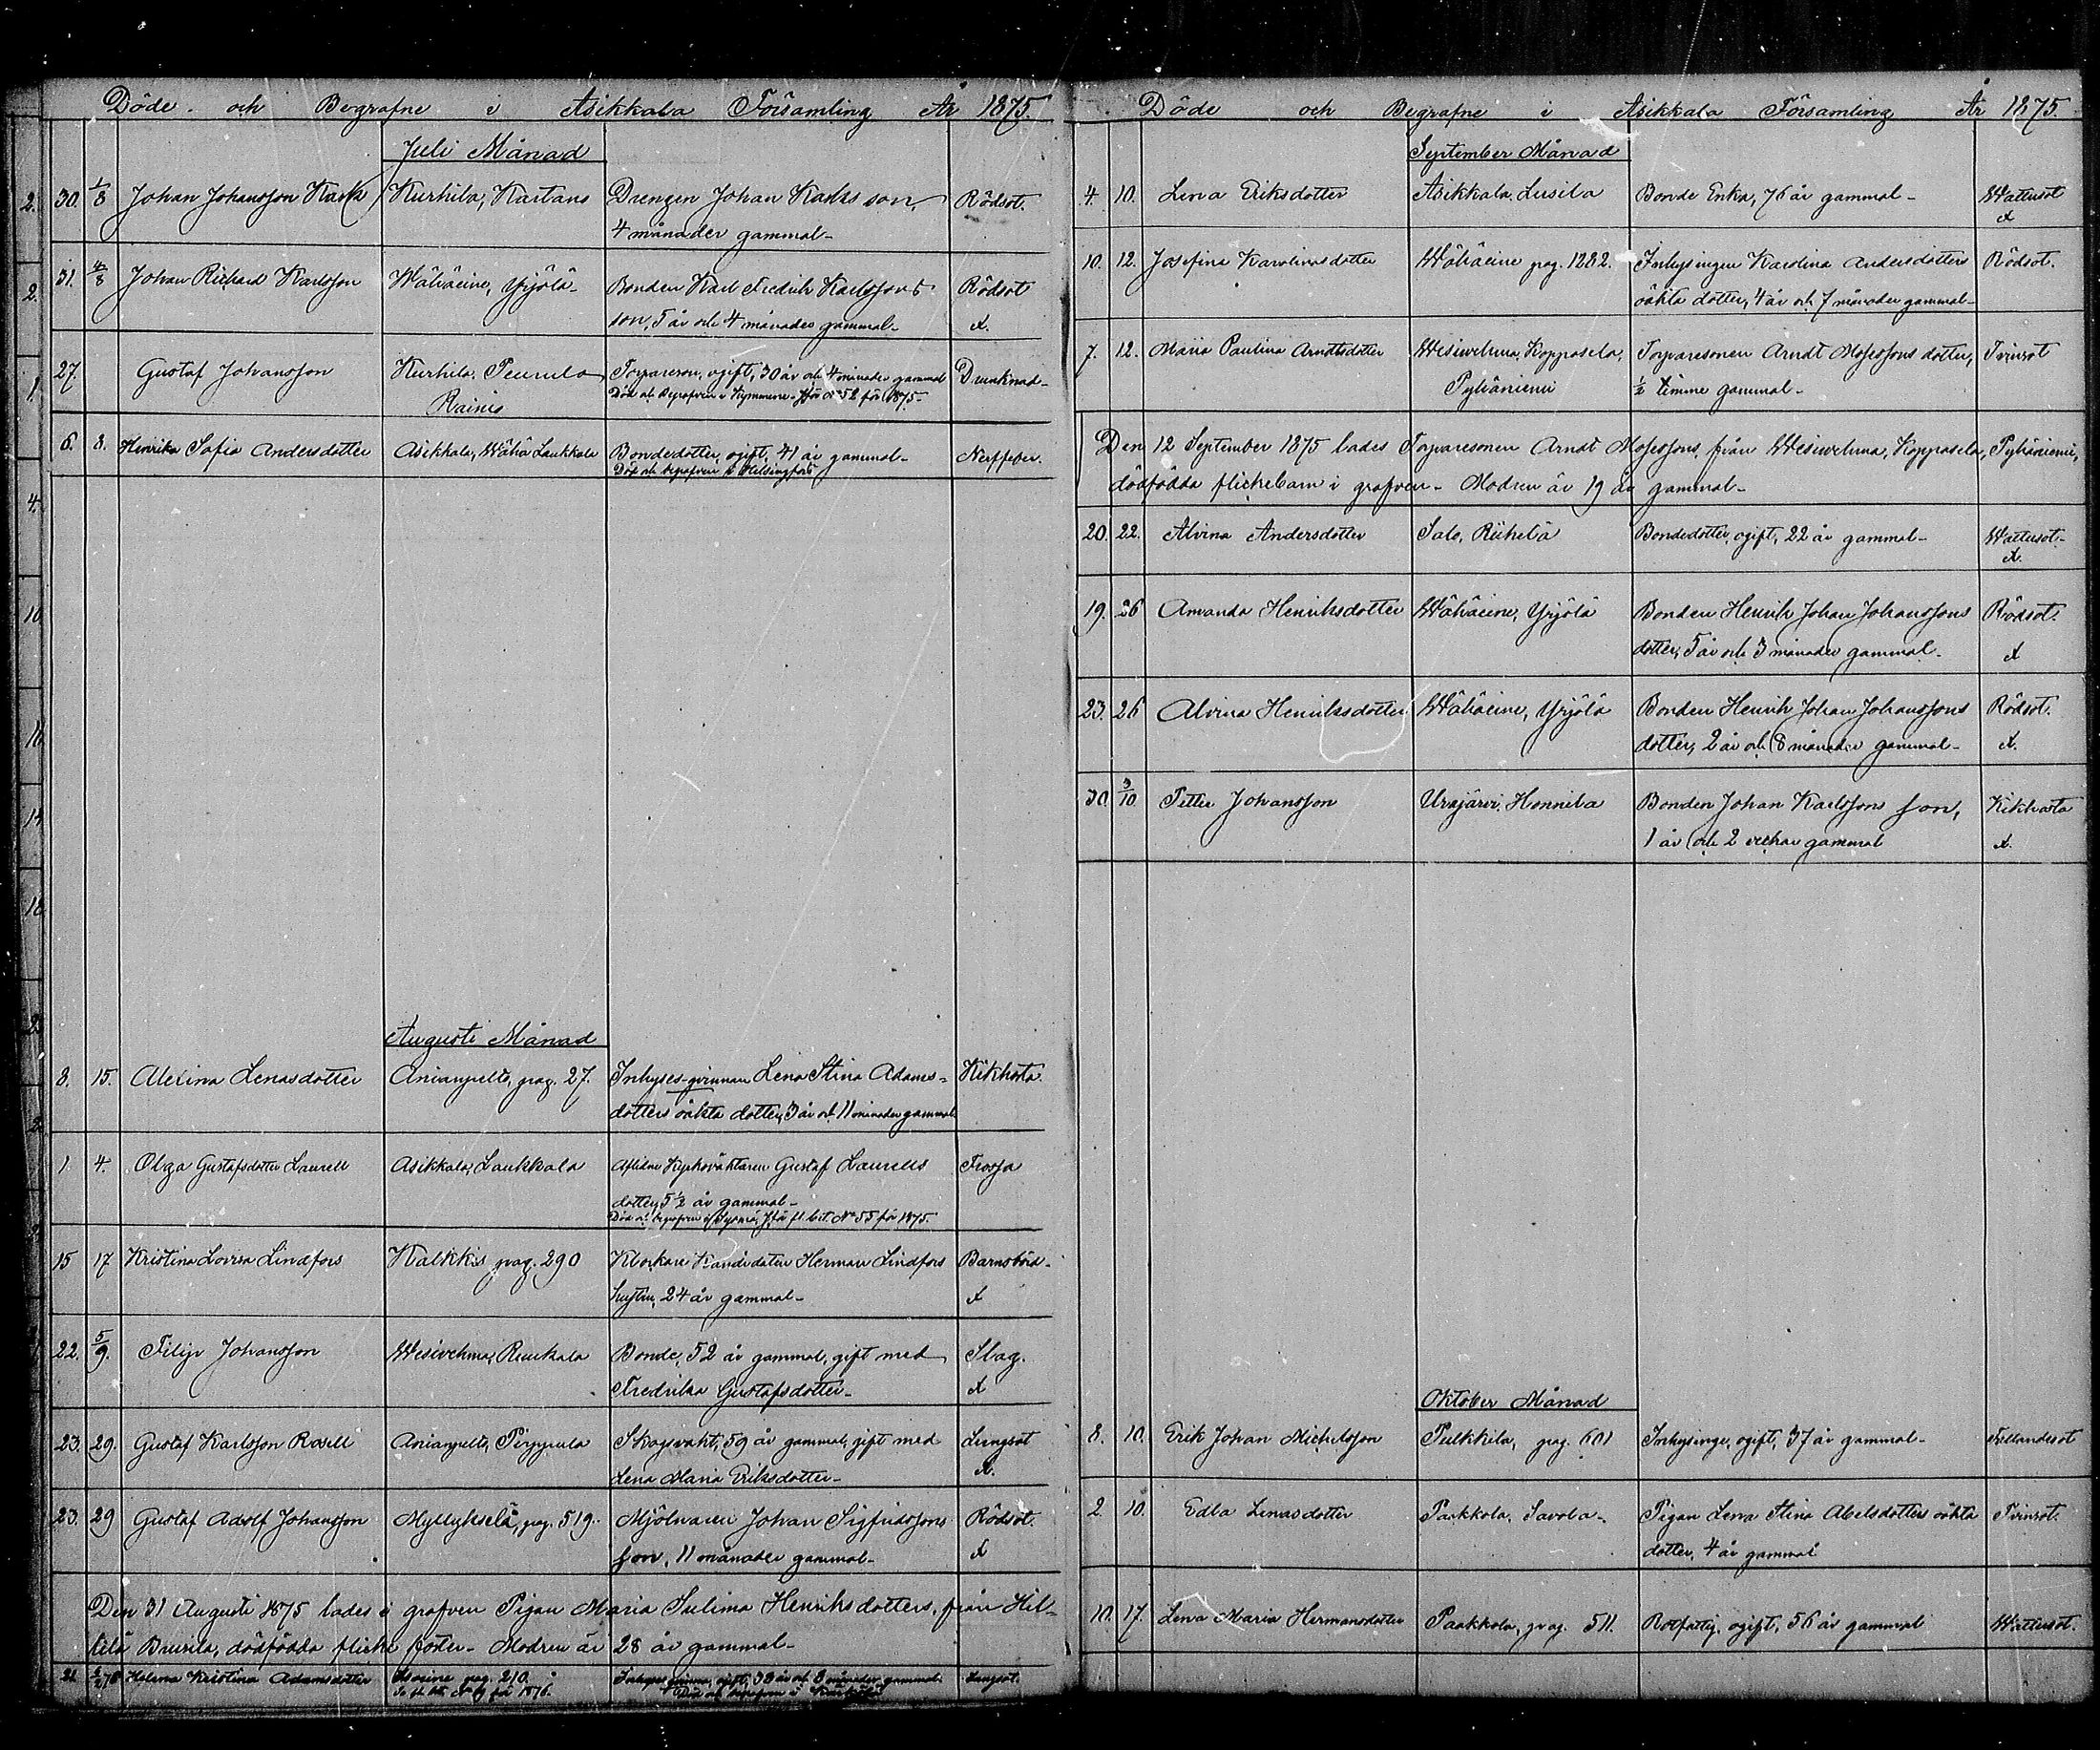 Döde och Begrafne i Asikkala Församling År 1875.
Juli Månad
30. 1/8 Johan Johansson Kark Kurhila, Kartano Drengen Johan Karks son, Rödsot.
4 månader gammal-
31. 4/8 Johan Richard Karlsson Wähääine, Yrjölä- Bonden Karl Fredrik Karlssons Rödsot
son, 5 år och 4 månader gammal- x.
27. Gustaf Johansson Kurhila, Torpareson, ogift, 30 år och 4 månader gammal Drunknad-
Död och Begrafven i Kymmene- Jfr No 52 för 1875-
6. 8. Henrika Sofia Andersdotter Asikkala, Wähä Laukkala Bondedotter, ogift, 41 år gammal- Nerffeber.
Död och begrafven i Helsingfors
Augusti Månad
8. 15. Alelina Lenasdotter Anianpelto, pag. 27. Inhyses-qvinnan Lena Stina Adams- Kikhosta.
dotters oäkta dotter, 3 år och 11 månader gammal
1. 4. Olga Gustafsdotter Laurell Asikkala, Laukkala Aflidne Kyrkoväktaren Gustaf Laurells Frossa
dotter, 5 1/2 år gammal-
Död och begrafven i Sysmä, Jfr fl. bet. No 55 för 1875.
15 17 Kristina Lovisa Lindfors Kalkkis pag. 290 Klockare Kandidaten Herman Lindfors Barnsbörd-
hustru, 24 år gammal- x
22. 5/9. Filip Johansson Wesivehma, Bonde, 52 år gammal, gift med Slag.
Fredrika Gustafsdotter- x
23. 29. Gustaf Karlsson Rosell Anianpelto, Skogsvakt, 59 år gammal, gift med Lungsot
Lena Maria Eriksdotter- x.
23. 29 Gustaf Adolf Johansson Myllykselä, pag. 519. Mjölnaren Johan Sigfridssons Rödsot.
son, 11 månader gammal- x
Den 31 Augusti 1875 lades i grafven Pigan Maria Sulima Henriksdotters, från Hil-
lilä dödfödda flicke foster- Modren är 28 år gammal-
21. Helena Kristina Adamsdotter pag. 210. ogift, 38 år och 8 månader gammal- Lungsot.
för 1876. Död och begrafven i
Döde och Begrafne i Asikkala Församling År 1875.
September Månad
4. 10. Lena Eriksdotter Asikkala, Lusila Bonde Enka, 76 år gammal- Wattusot
x
10. 12. Josefina Karolinasdotter Wähääine pag. 1282. Inhysingen Karolina Andersdotters Rödsot.
oäkta dotter, 4 år och 7 månader gammal-
7. 12. Maria Paulina Arndtsdotter Wesivehma, Koppasela, Torparesonen Arndt Mosessons dotter, Tvinsot
Pyhäniemi 1/2 timme gammal-
Den 12 September 1875 lades Torparesonen Arndt Mosessons, från Wesivehma, Koppasela, Pyhäniemi,
dödfödda flickebarn i grafven- Modren är 19 år gammal-
20. 22. Alvina Andersdotter Salo, Riihelä Bondedotter, ogift, 22 år gammal- Wattusot-
x.
19. 26 Amanda Henriksdotter Wähääine, Yrjölä Bonden Henrik Johan Johanssons Rödsot.
dotter, 5 år och 3 månader gammal- x
23. 26 Alvina Henriksdotter Wähääine, Yrjölä Bonden Henrik Johan Johanssons Rödsot.
dotter, 2 år och 8 månader gammal- x.
30. 3/10. Petter Johansson Urajärvi, Honnila Bonden Johan Karlssons son, Kikhosta
1 år och 2 veckor gammal x.
Oktober Månad
8. 10. Erik Johan Michelsson Pulkkila, pag. 601 Inhysinge, ogift, 37 år gammal- Fallandesot
2. 10. Edla Lenasdotter Paakkola, Savola- Pigan Lena Stina Abelsdotters oäkta Tvinsot.
dotter, 4 år gammal
10. 17. Lena Maria Hermansdotter Paakkola, pag. 511. Rotfattig, ogift, 56 år gammal Wattusot.